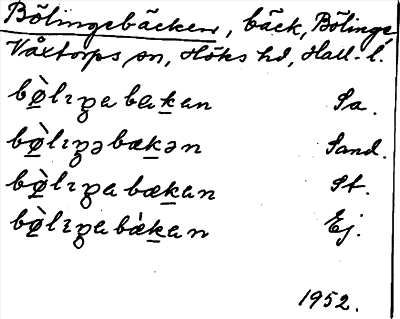 Bölingebäcken, bäck, Bölinge,
Våxtorps sn, Höks hd, Hall. l.
bø̀lıŋa bakan Sa.
bø̀lıŋəbækən Sand.
bø̀lıŋa bækan St.
bø̀lıŋa bækan Ej.
1952.